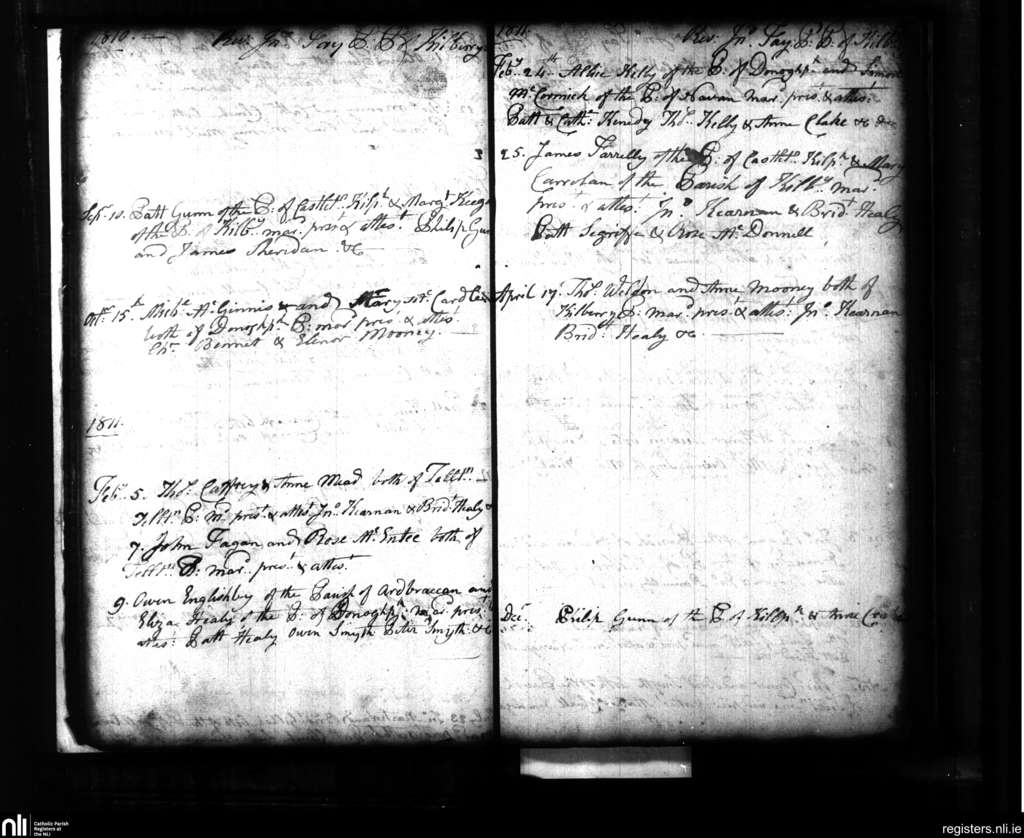 1810.
Rev. Jno. P. P. of Kilberry
Sepr. 10. Patt Gunn of the P: of Castletn. Kilpk. & Margt.
of the P. of Kilby. mar. prest. & attest. Philip
and James Sheridan. &c
Oct. 15th Mc.Ginnis and Mary
both of Donoghpk. P: mar. prest. & attes.
Chr. Bennet & Elenor Mooney.
1811.
Feby. 5. Thos. Caffrey & Anne Mead both of Telltn.
Telltn. P: mr. prest. & attest. Jno. Kearnan & Bridt. Healy &
7. John Fagan and Rose Mc.Entee both of
Telltn. P: mar. prest. & attest.
9. Owen English of the Parish of Ardbraccan and
Eliza Healy of the P: of Donoghpk: mar. prest.
attes: Patt Healy Owen Smyth Peter Smyth &c
1811.
Rev. Jno. P. P. of Kilb
Feby. 24th Allice Kelly of the P: of Donoghpk. and
Mc.Cormick of the P: of Navan mar. prest. & attes:
Patt & Cath: Kenedy Thos. Kelly & Anne Clake &c
25. James Farrelly of the P: of Castletn. Kilpk. & Mary
of the Parish of Kilby. mar.
prest. & attes: Jno. Kearnan & Bridt. Healy
Patt & Rose Mc.Donnell
April 17. Thos. Weldon and Anne Mooney both of
Kilberry P: mar. prest. & attes: Jno. Kearnan
Brid: Healy &c
Decr. Philip Gunn of the P. of & Anne
nli
Catholic Parish
Registers at
the NLI
registers.nli.ie